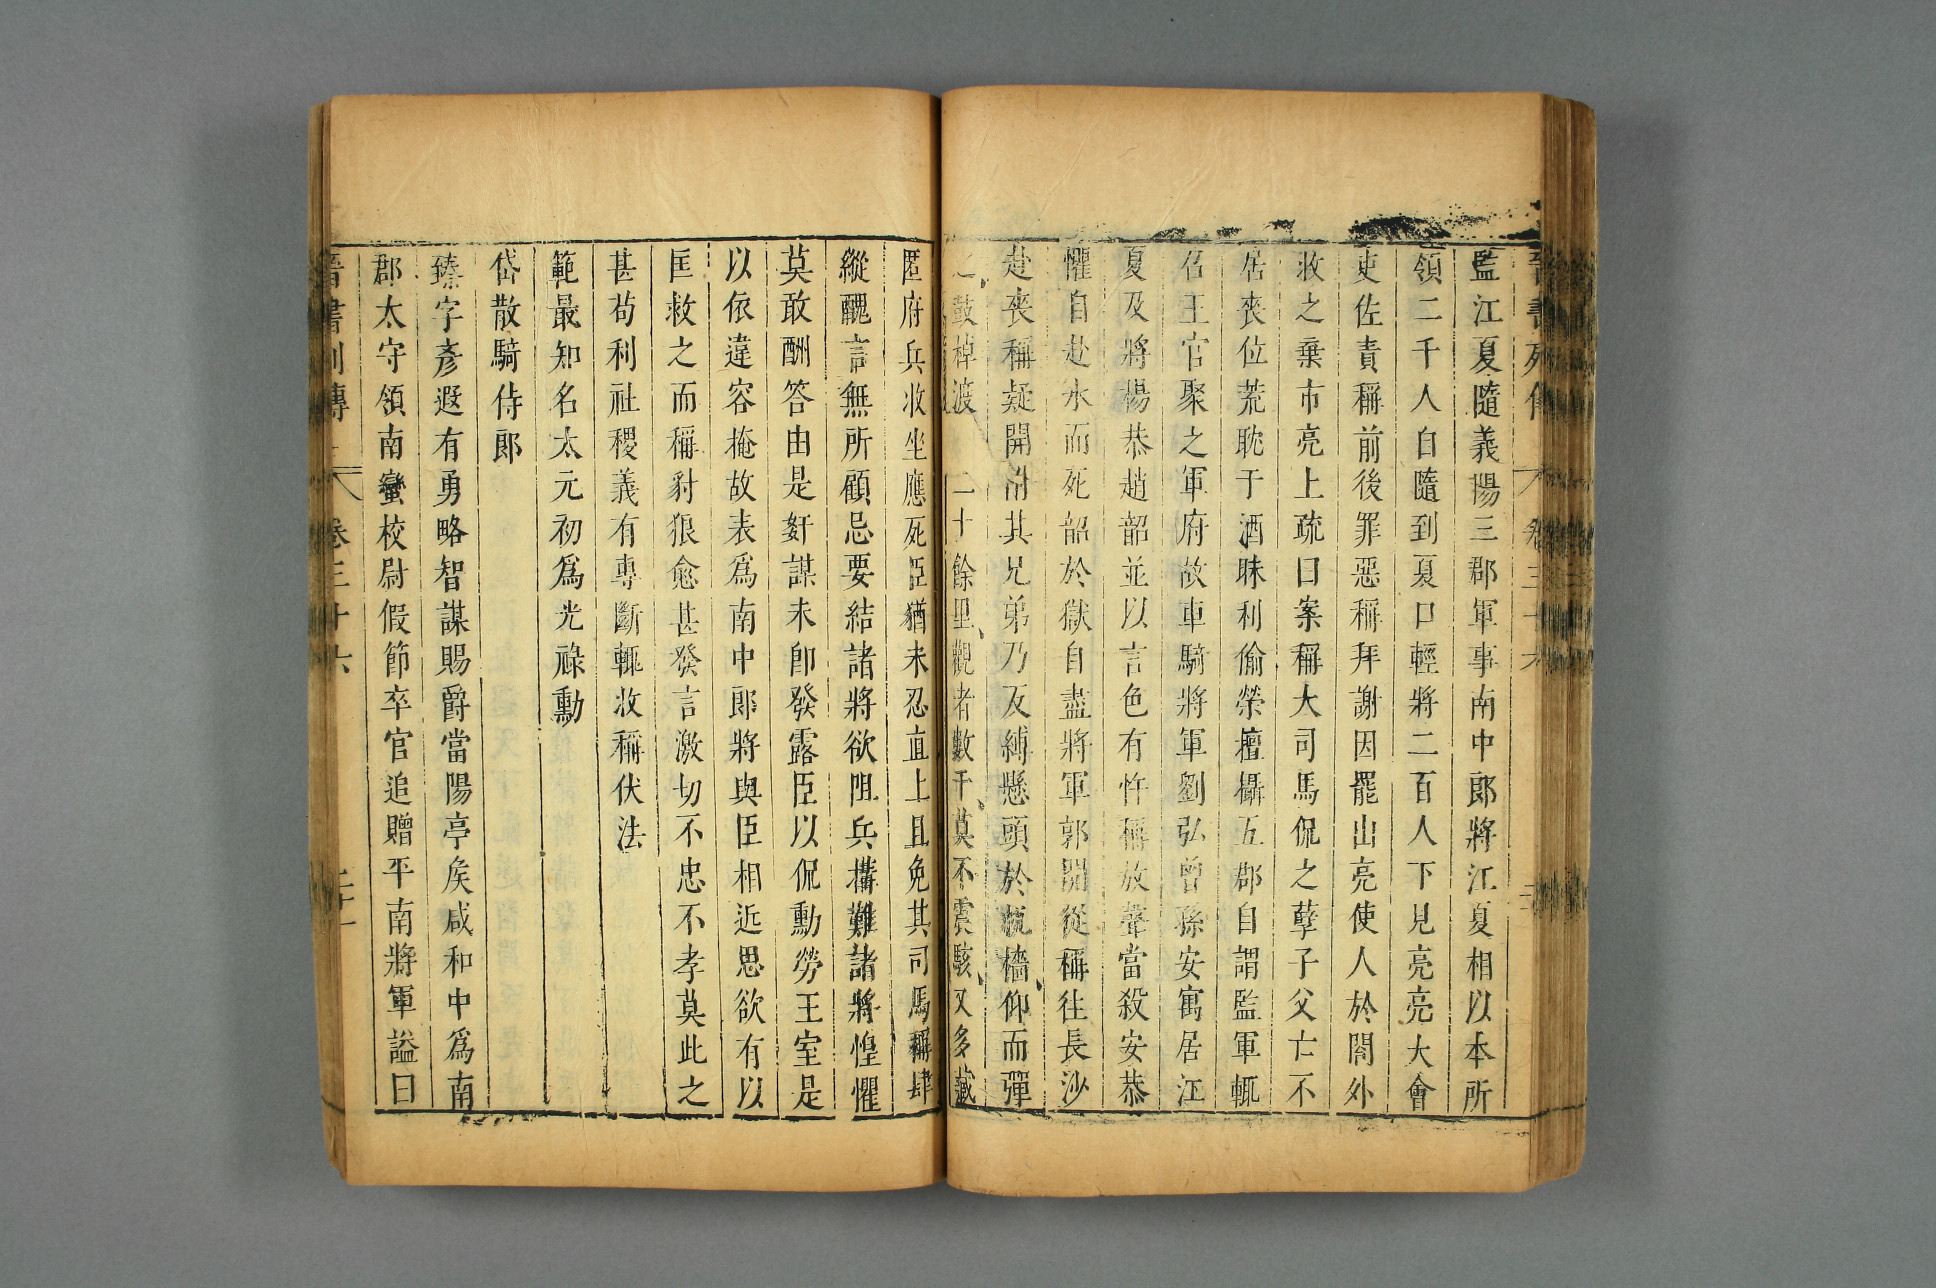 晉書列傳 卷三十六
監江夏隨義陽三郡軍事南中郎將江夏相以本所
領二千人自隨到夏口輕將二百人下見亮亮大會
吏佐責稱前後罪惡稱拜謝因罷出亮使人於閤外
收之棄市亮上疏曰案稱大司馬侃之孽子父亡不
居喪位荒耽于酒昧利偷榮擅攝五郡自謂監軍輒
召王官聚之軍府故車騎將軍劉弘曾孫安寓居江
夏及將楊恭趙韶並以言色有忤稱放聲當殺安恭
懼自赴水而死韶於獄自盡將軍郭開從稱往長沙
赴喪稱疑開附其兄弟乃反縛懸頭於帆檣仰而彈
之鼓棹渡 二十餘里觀者數千莫不震駭又多藏
匿府兵收坐應死臣猶未忍直上且免其司馬稱肆
縱醜言無所顧忌要結諸將欲阻兵搆難諸將惶懼
莫敢酬答由是姧謀未卽發露臣以侃勳勞王室是
以依違容掩故表爲南中郎將與臣相近思欲有以
匡救之而稱豺狼愈甚發言激切不忠不孝莫此之
甚苟利社稷義有專斷輒收稱伏法
範最知名太元初爲光祿勳
岱散騎侍郎
臻字彥遐有勇略智謀賜爵當陽亭矦咸和中爲南
郡太守領南蠻校尉假節卒官追贈平南將軍謚曰
晉書列傳 卷三十六 二十一